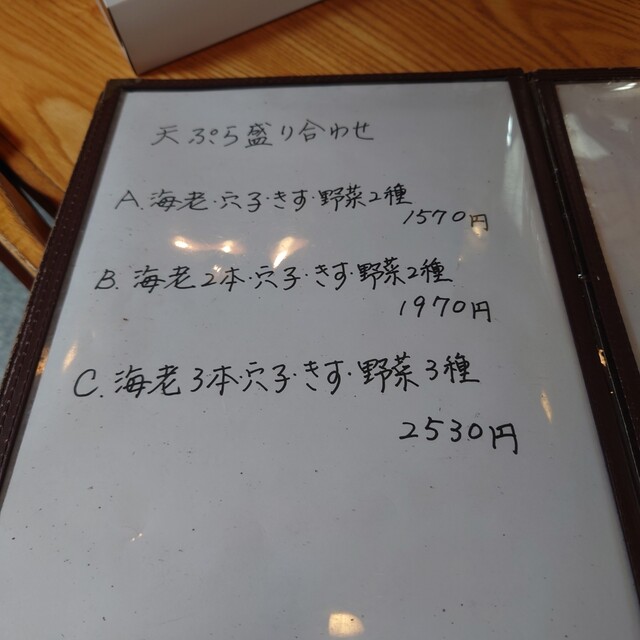 天ぷら盛り合わせ
A.海老・穴子・きす・野菜2種
1570円
B.海老2本・穴子・きす・野菜2種
1970円
C.海老3本・穴子・きす・野菜3種
2530円